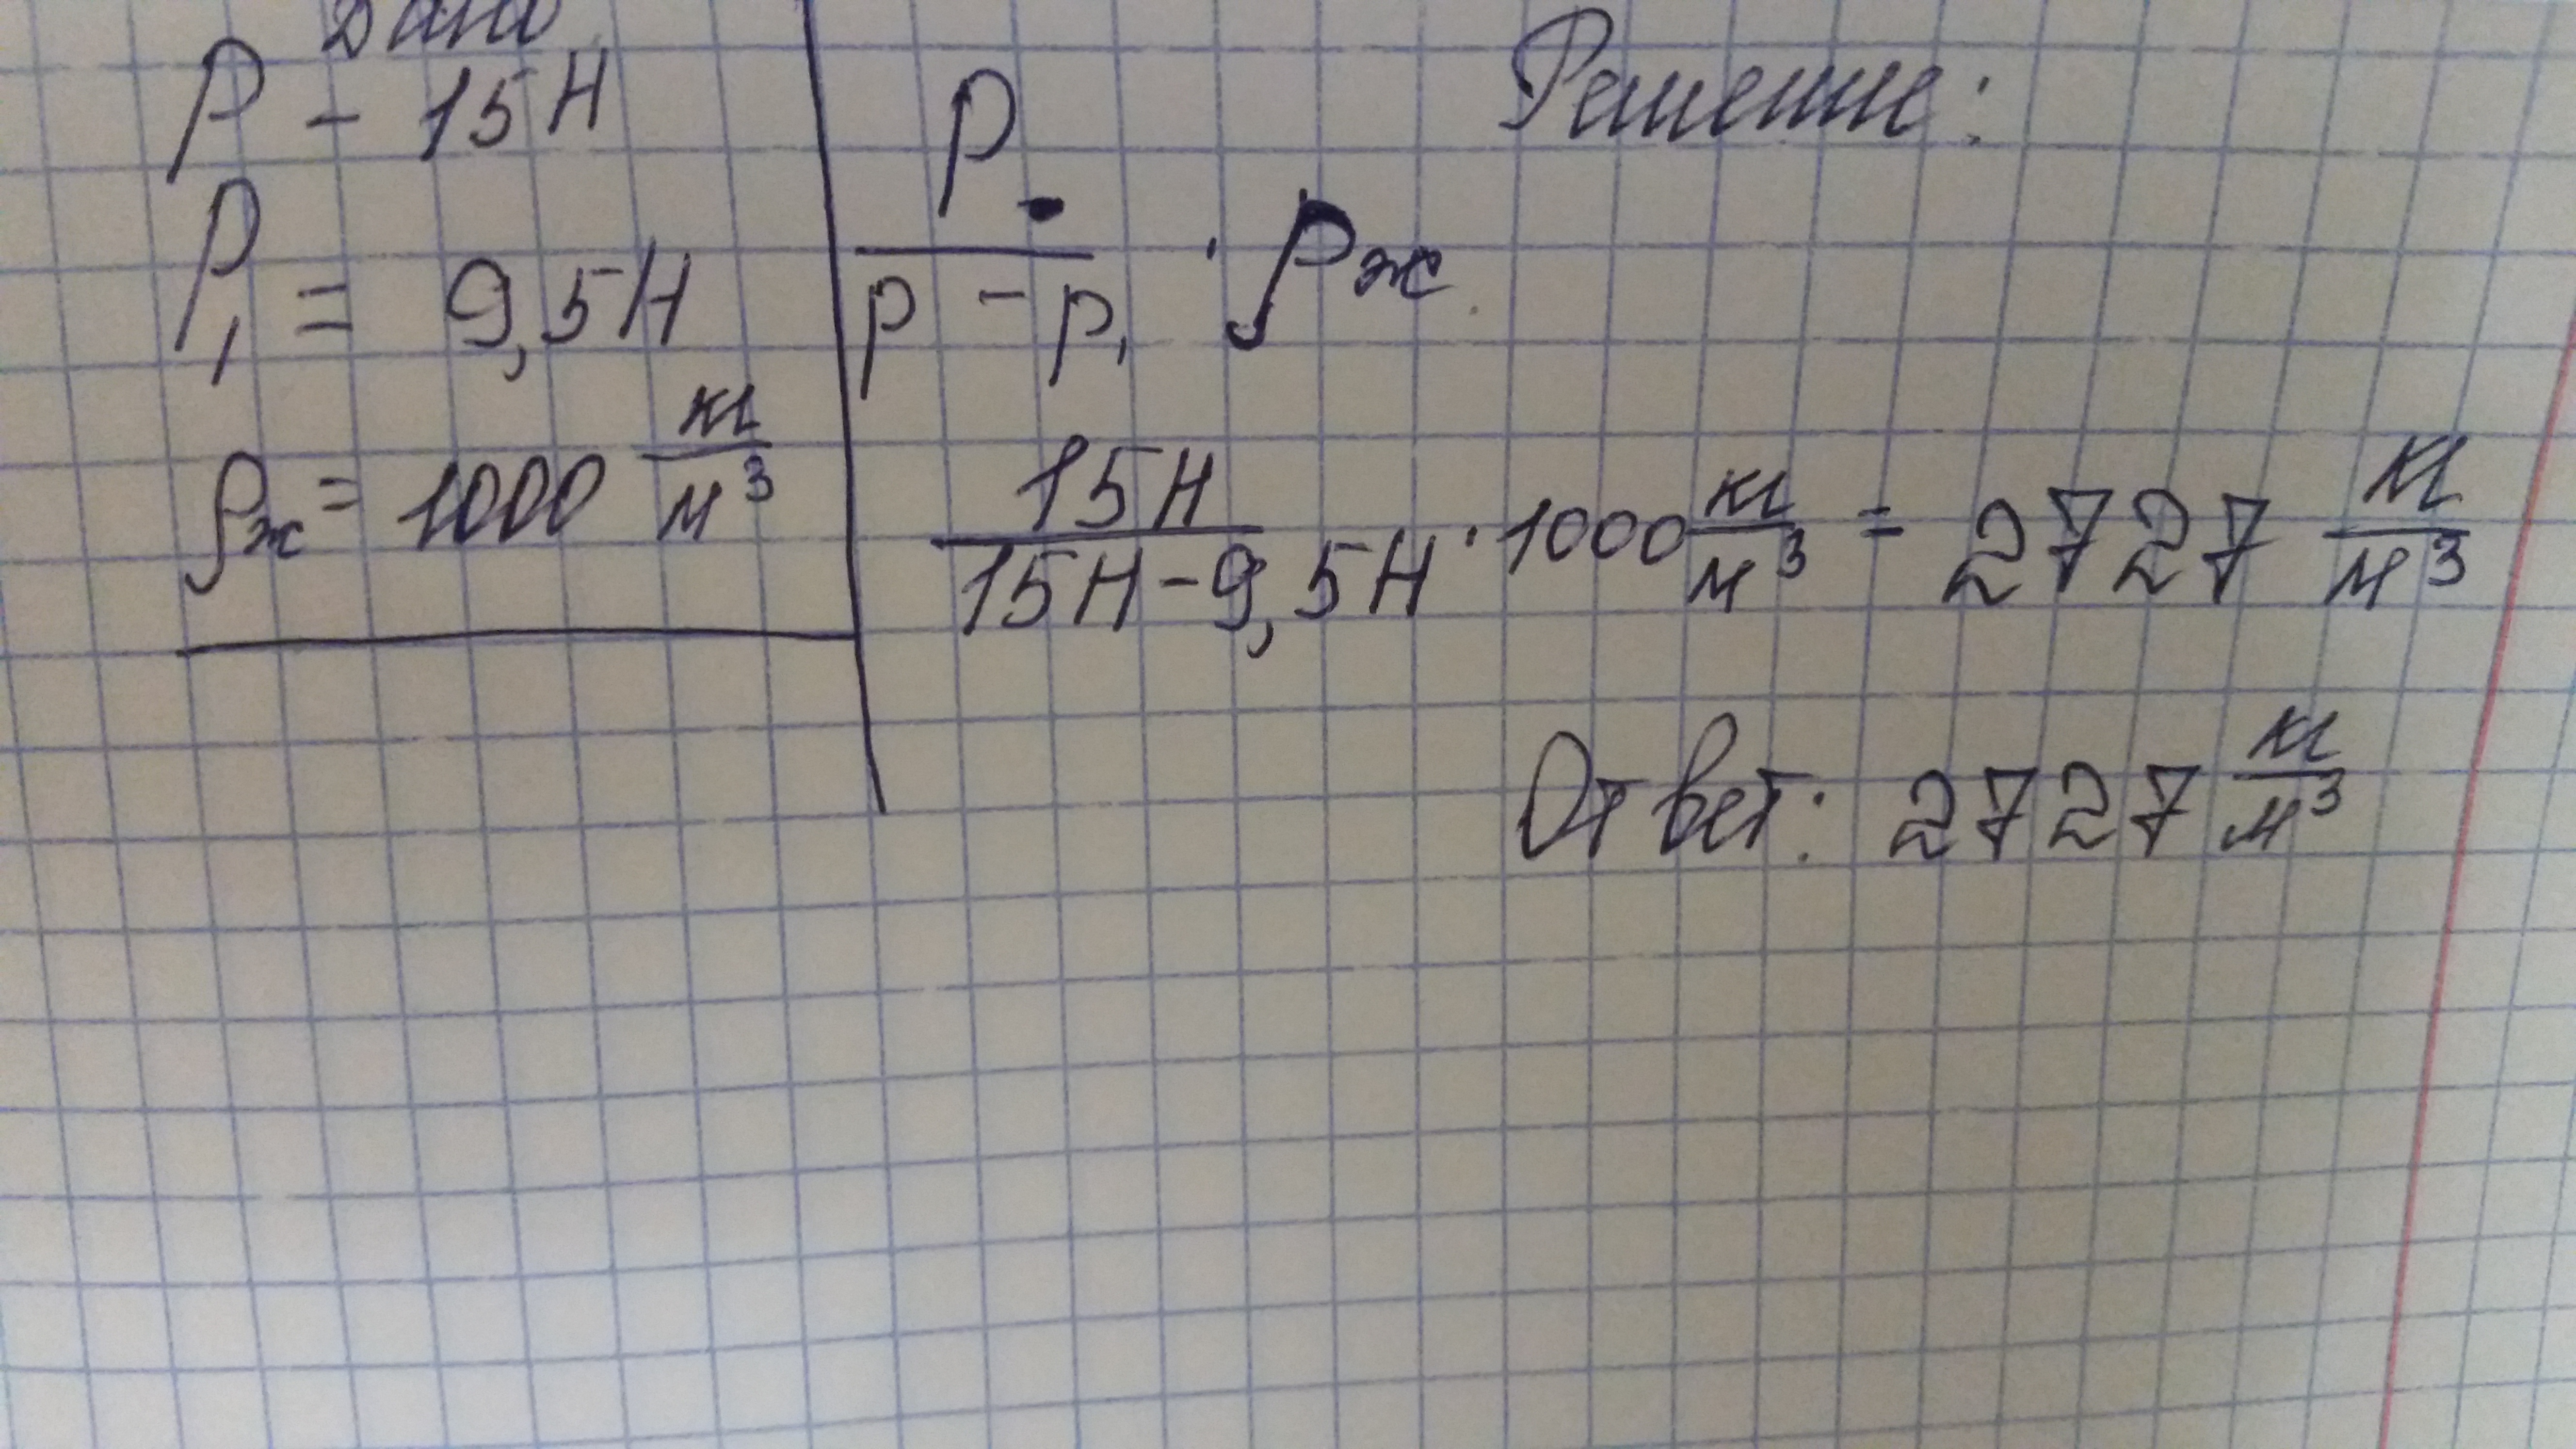 Дано
P – 15 Н
P₁ = 9,5 Н
ρж = 1000 кг/м³
Решение:
P / (P – P₁) · ρж
15 Н / (15 Н – 9,5 Н) · 1000 кг/м³ = 2727 кг/м³
Ответ: 2727 кг/м³